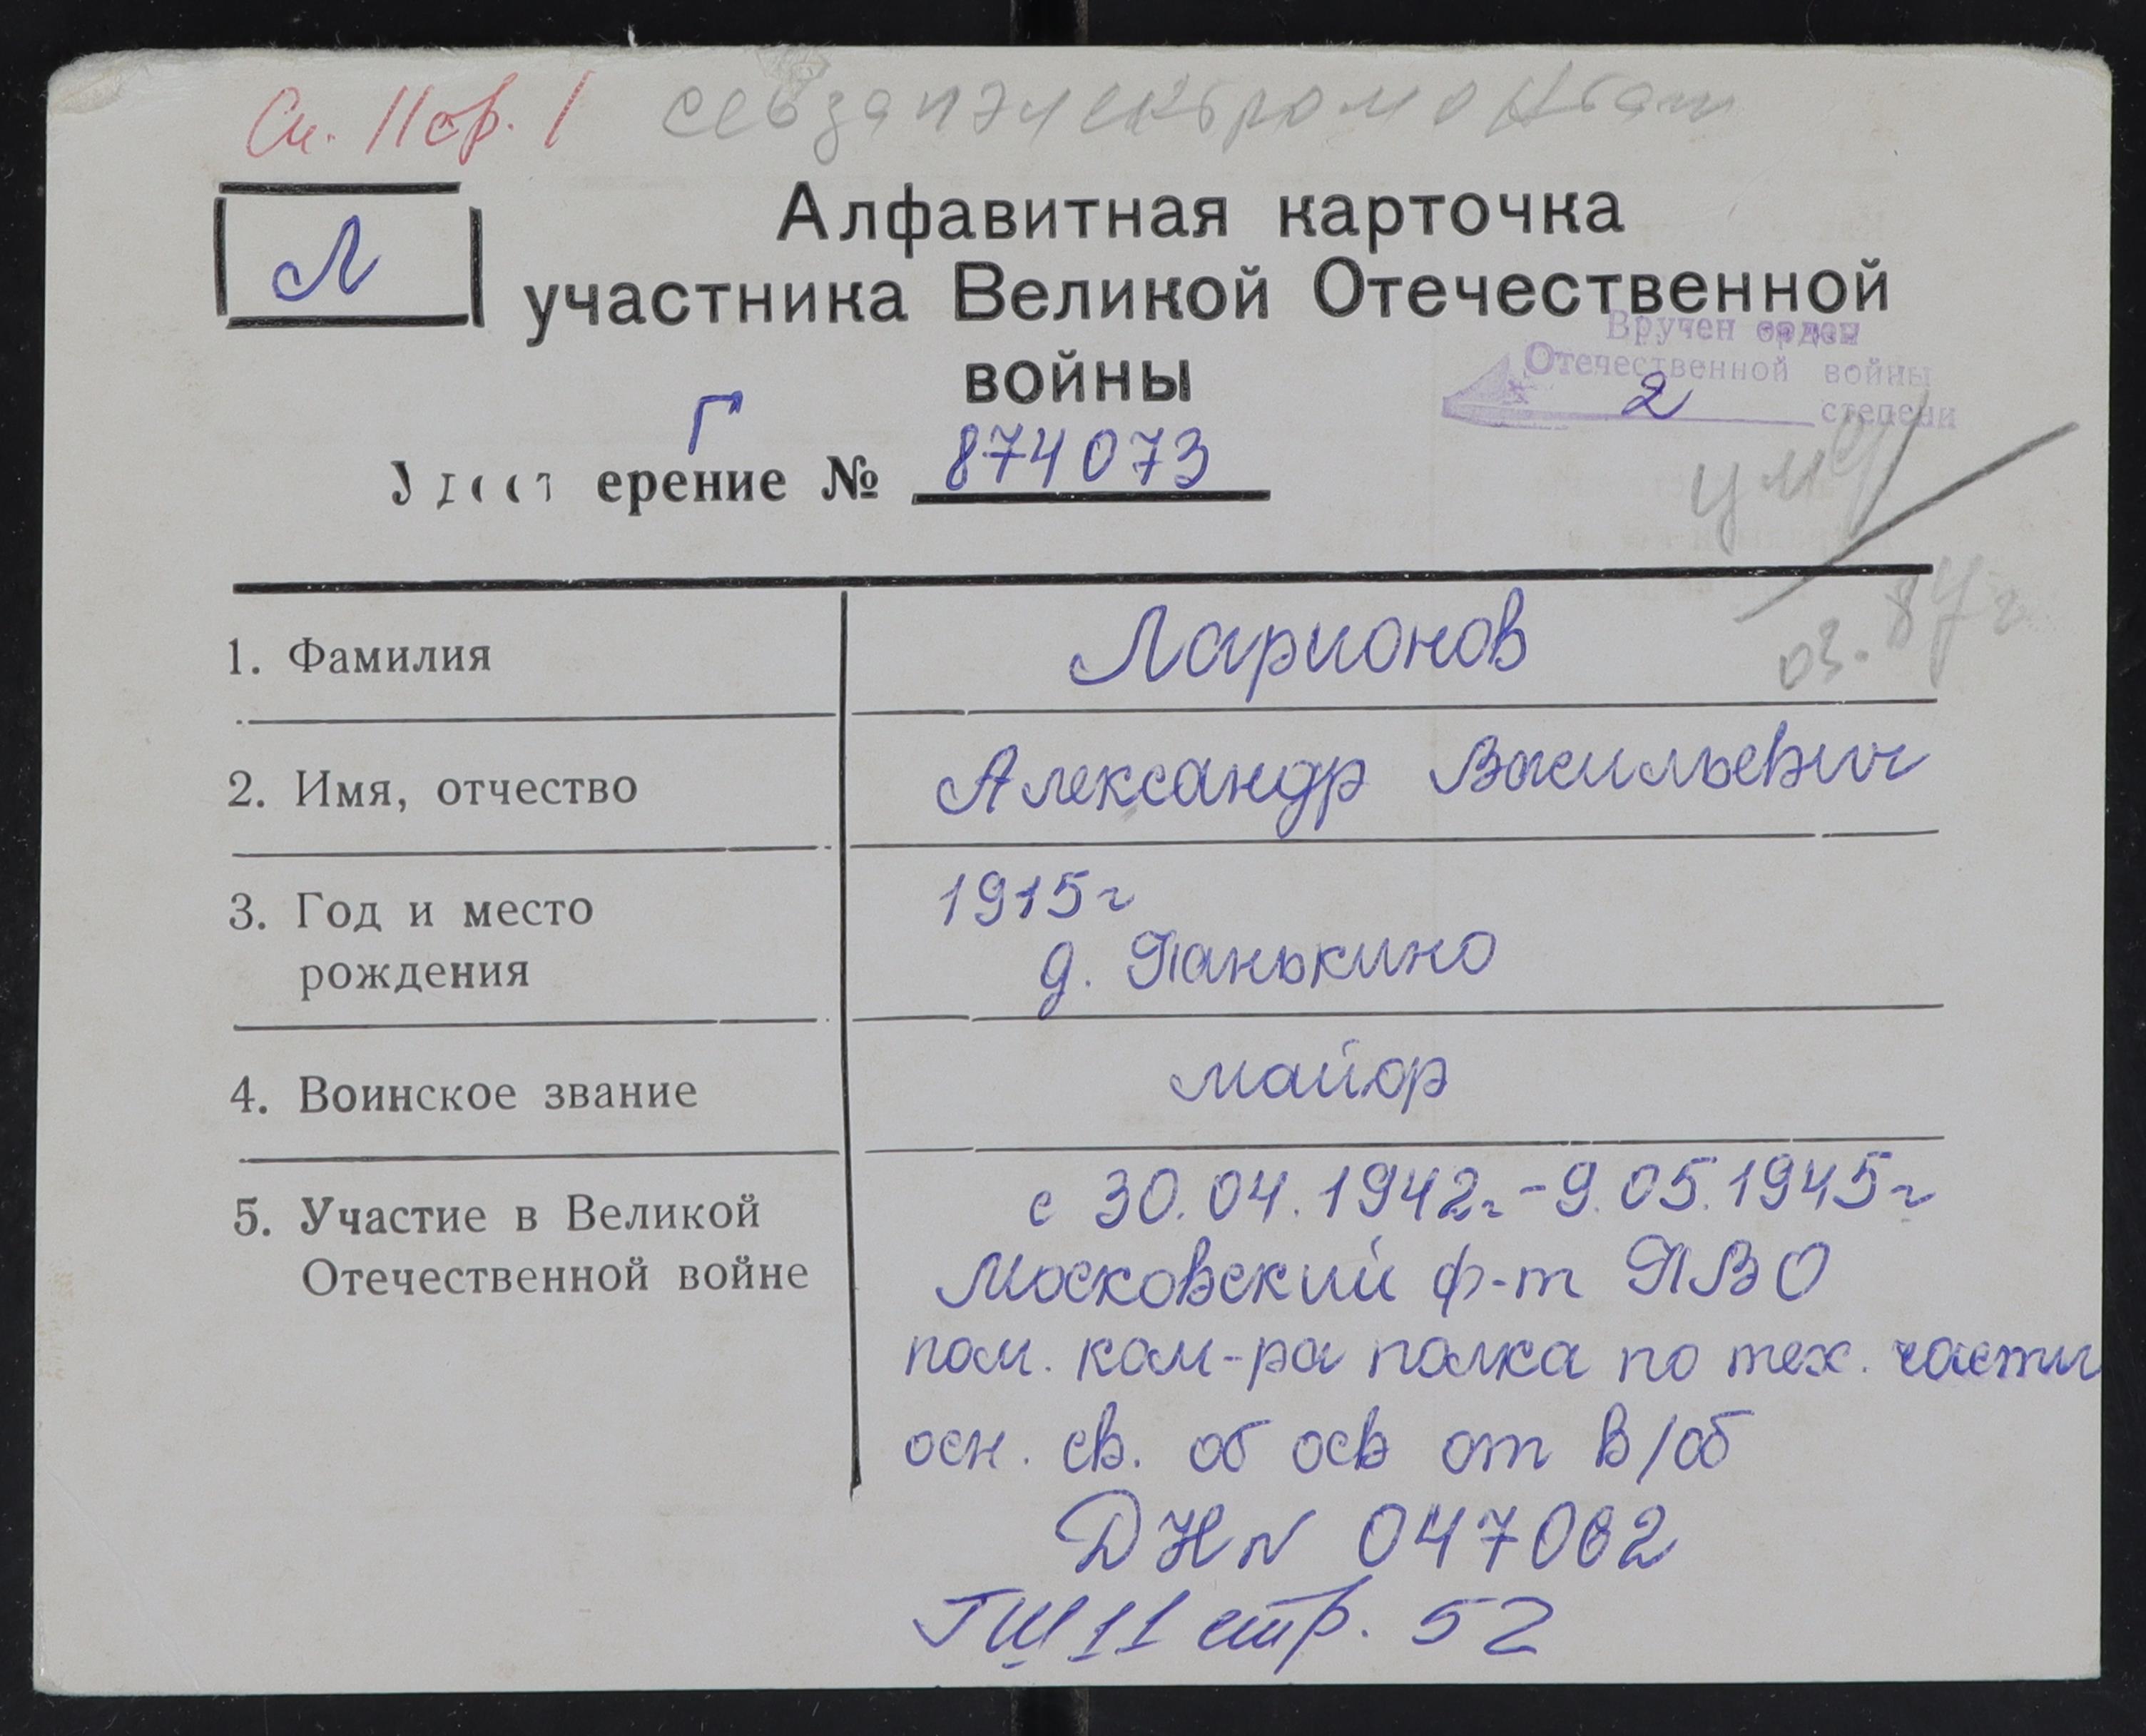 Сп. 11 стр. 1 севзапэлектромонтаж
Л
Алфавитная карточка
участника Великой Отечественной
войны
Вручен орден
Отечественной войны
2 степени
Г
Удостоверение № 874073
ум
03.87г
1. Фамилия Ларионов
2. Имя, отчество Александр Васильевич
3. Год и место 1915г
рождения д. Панькино
4. Воинское звание майор
5. Участие в Великой с 30.04.1942г-9.05.1945г
Отечественной войне Московский ф-т ПВО
пом. ком-ра полка по тех. части
осн. св. об осв от в/об
ДН № 047062
ГШ 11 стр. 52